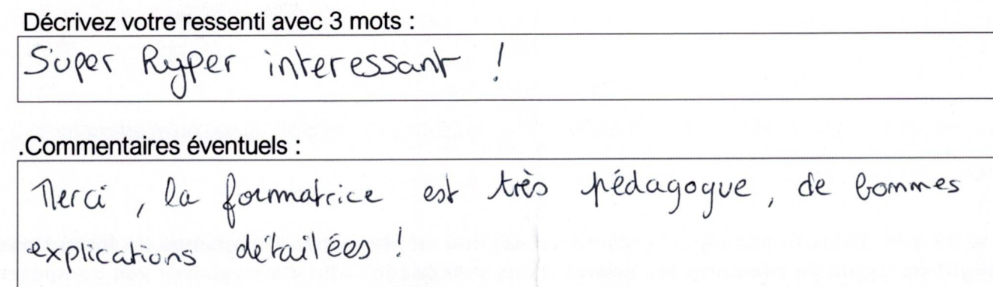 Décrivez votre ressenti avec 3 mots :
Super Hyper interessant !
.Commentaires éventuels :
Merci, la formatrice est très pédagogue, de bonnes
explications détailées !